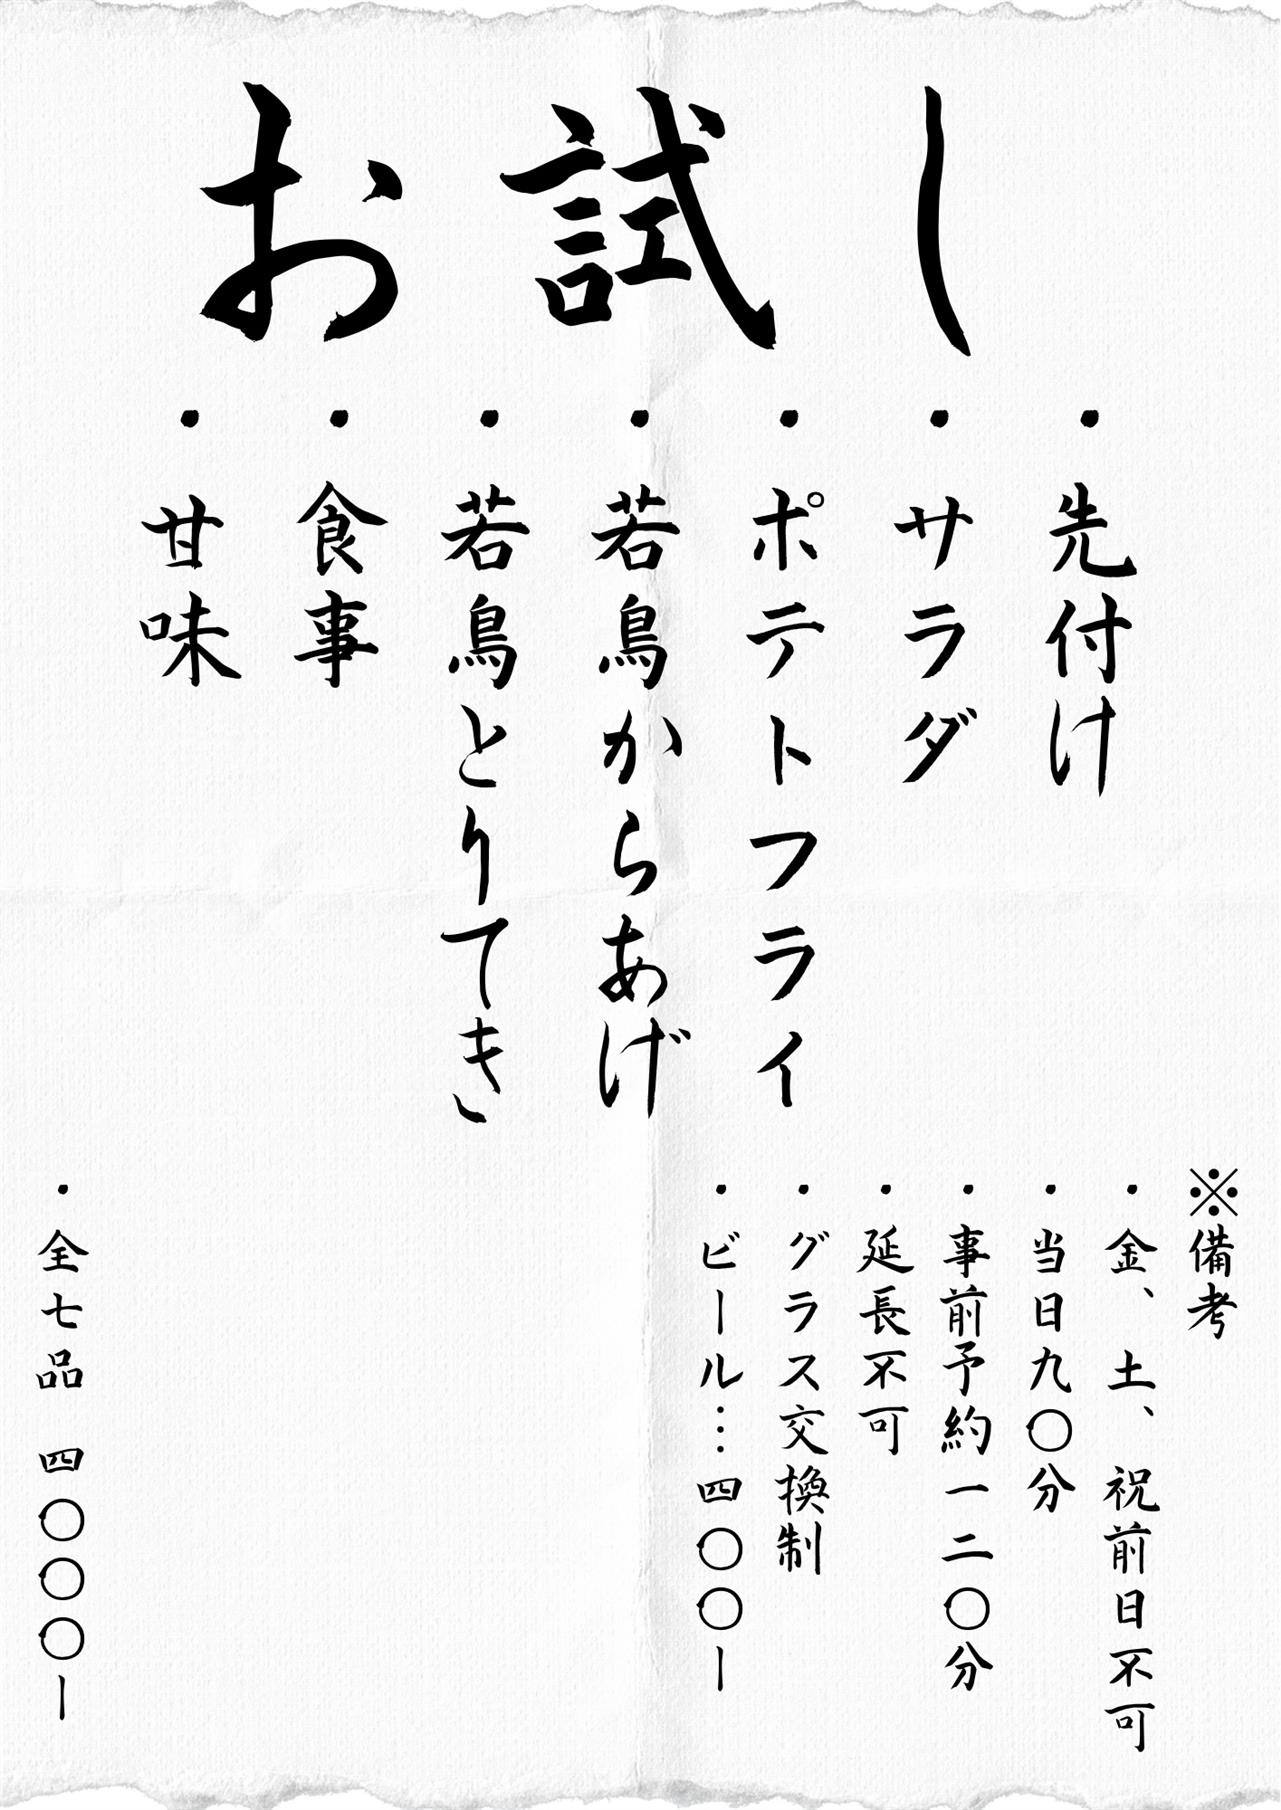 お試し
・先付け
・サラダ
・ポテトフライ
・若鳥からあげ
・若鳥とりてき
・食事
・甘味
※備考
・金、土、祝前日不可
・当日九〇分
・事前予約一二〇分
・延長不可
・グラス交換制
・ビール…四〇〇ー
・全七品 四〇〇〇ー